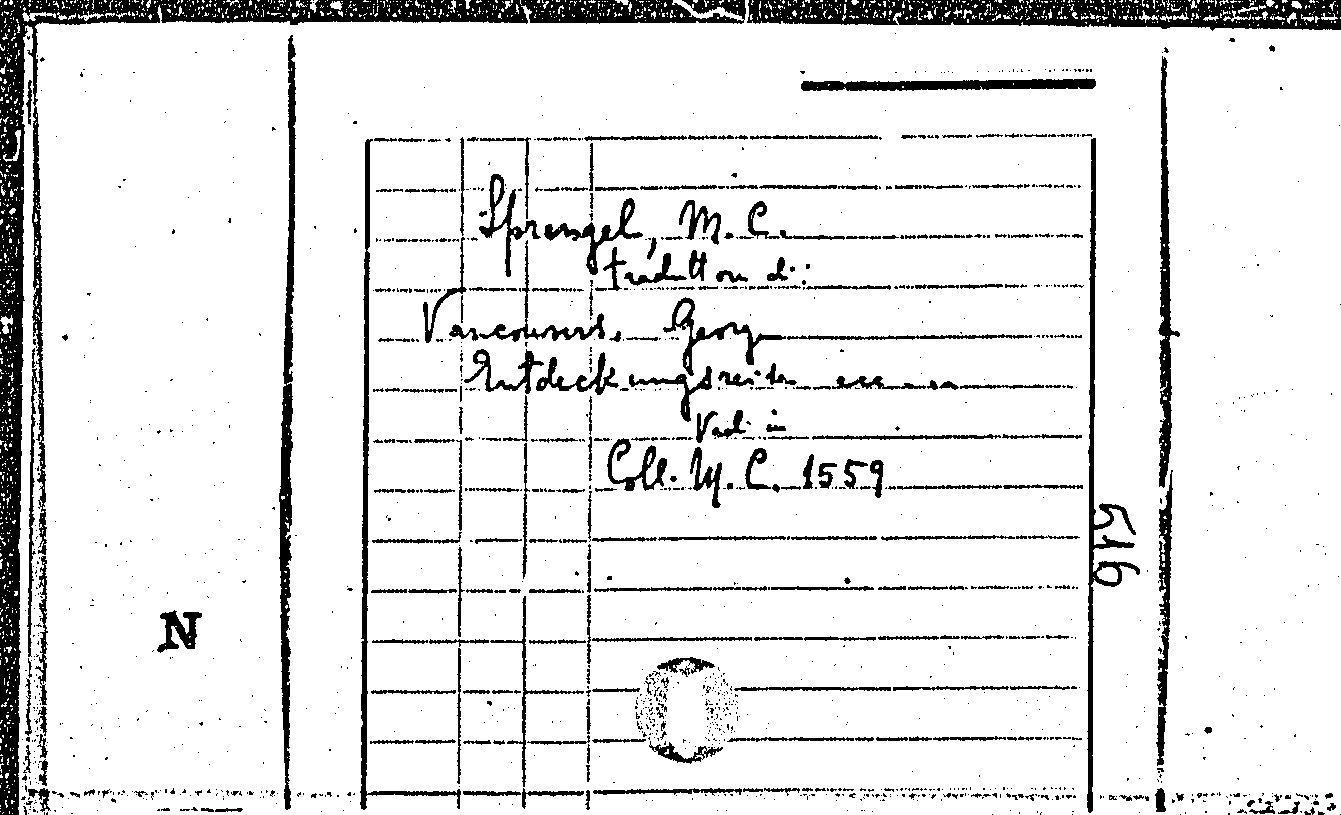 Sprengel, M. C.
traduttore di:
Vancouvers, Georg
Entdeckungsreisen ecc ....
Vedi in
Coll. M. C. 1559
516
N